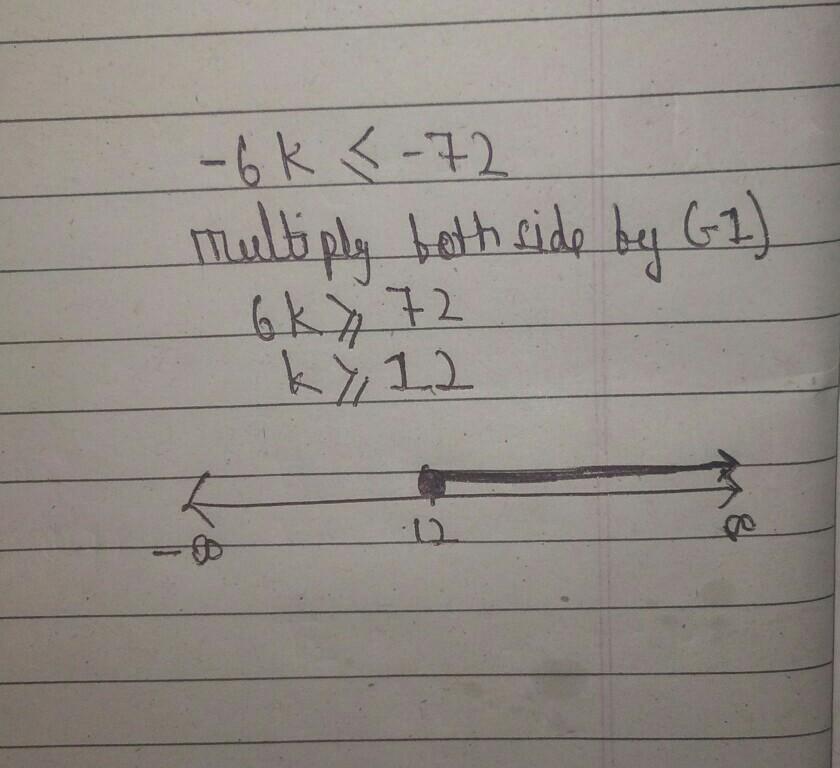 -6k ⩽ -72
multiply both side by (-1)
6k ⩾ 72
k ⩾ 12
-∞ 12 ∞